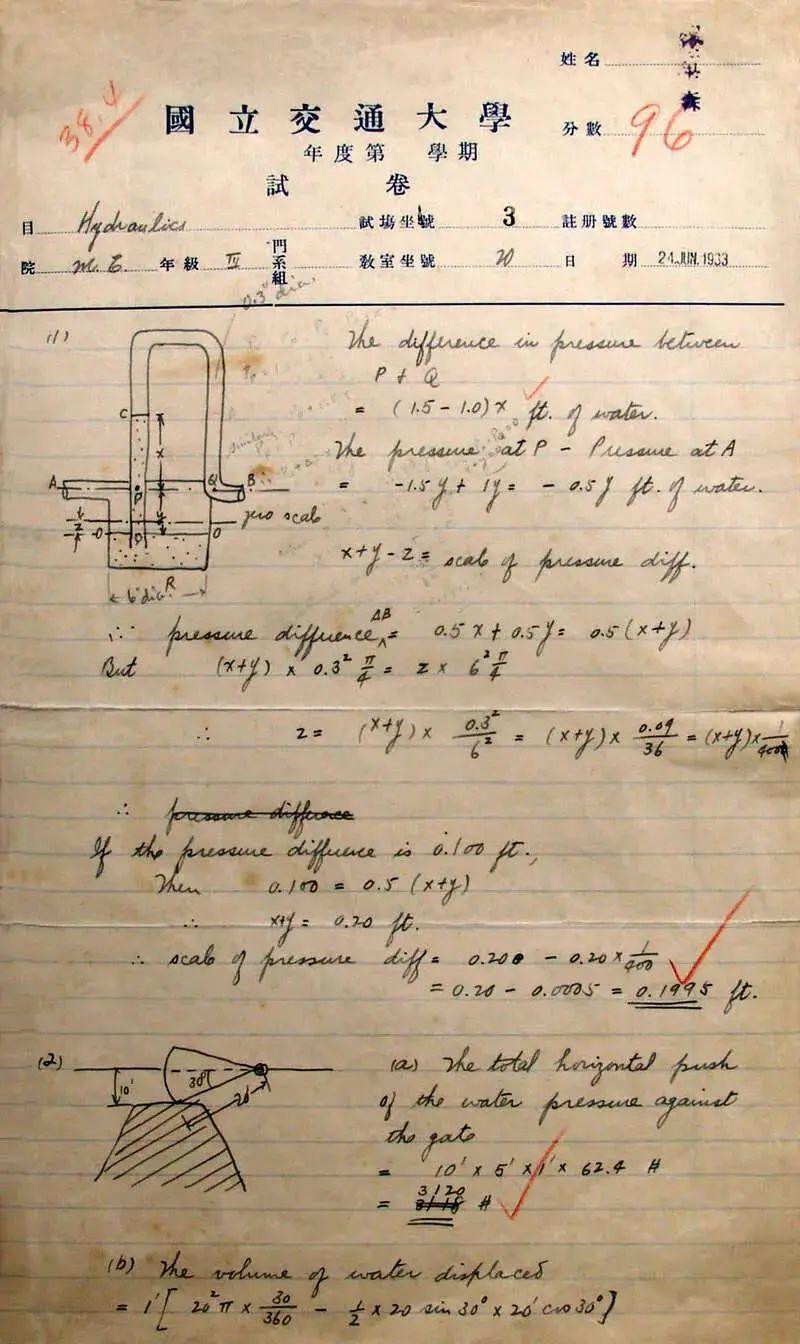 姓名
38.4
國立交通大學
分數 96
年度第 學期
試 卷
目 Hydraulics 試場坐號 3 註册號數
院 M.E. 年級 IV 門系組 教室坐號 20 日期 24.JUN.1933
0.3" dia.
(1)
The difference in pressure between
P & Q
= (1.5 - 1.0)x ft. of water.
The pressure at P - Pressure at A
= -1.5y + 1y = - 0.5y ft. of water.
C
x
A
P
Q
B
zero scale
O
O
D
z
R
6" dia.
x+y - z = scale of pressure diff.
∴ pressure difference AB = 0.5x + 0.5y = 0.5(x+y)
But (x+y) x 0.3² π/4 = z x 6² π/4
∴ z = (x+y) x 0.3²/6² = (x+y) x 0.09/36 = (x+y) x 1/400
∴ pressure difference
If the pressure difference is 0.100 ft.,
Then 0.100 = 0.5 (x+y)
∴ x+y = 0.20 ft.
∴ scale of pressure diff = 0.200 - 0.20 x 1/400
= 0.20 - 0.0005 = 0.1995 ft.
(2)
10'
30°
20'
(a) The total horizontal push
of the water pressure against
the gate
= 10' x 5' x 1' x 62.4 #
= 3120 #
(b) The volume of water displaced
= 1' [ 20² π x 30/360 - 1/2 x 20 sin 30° x 20' cos 30° ]